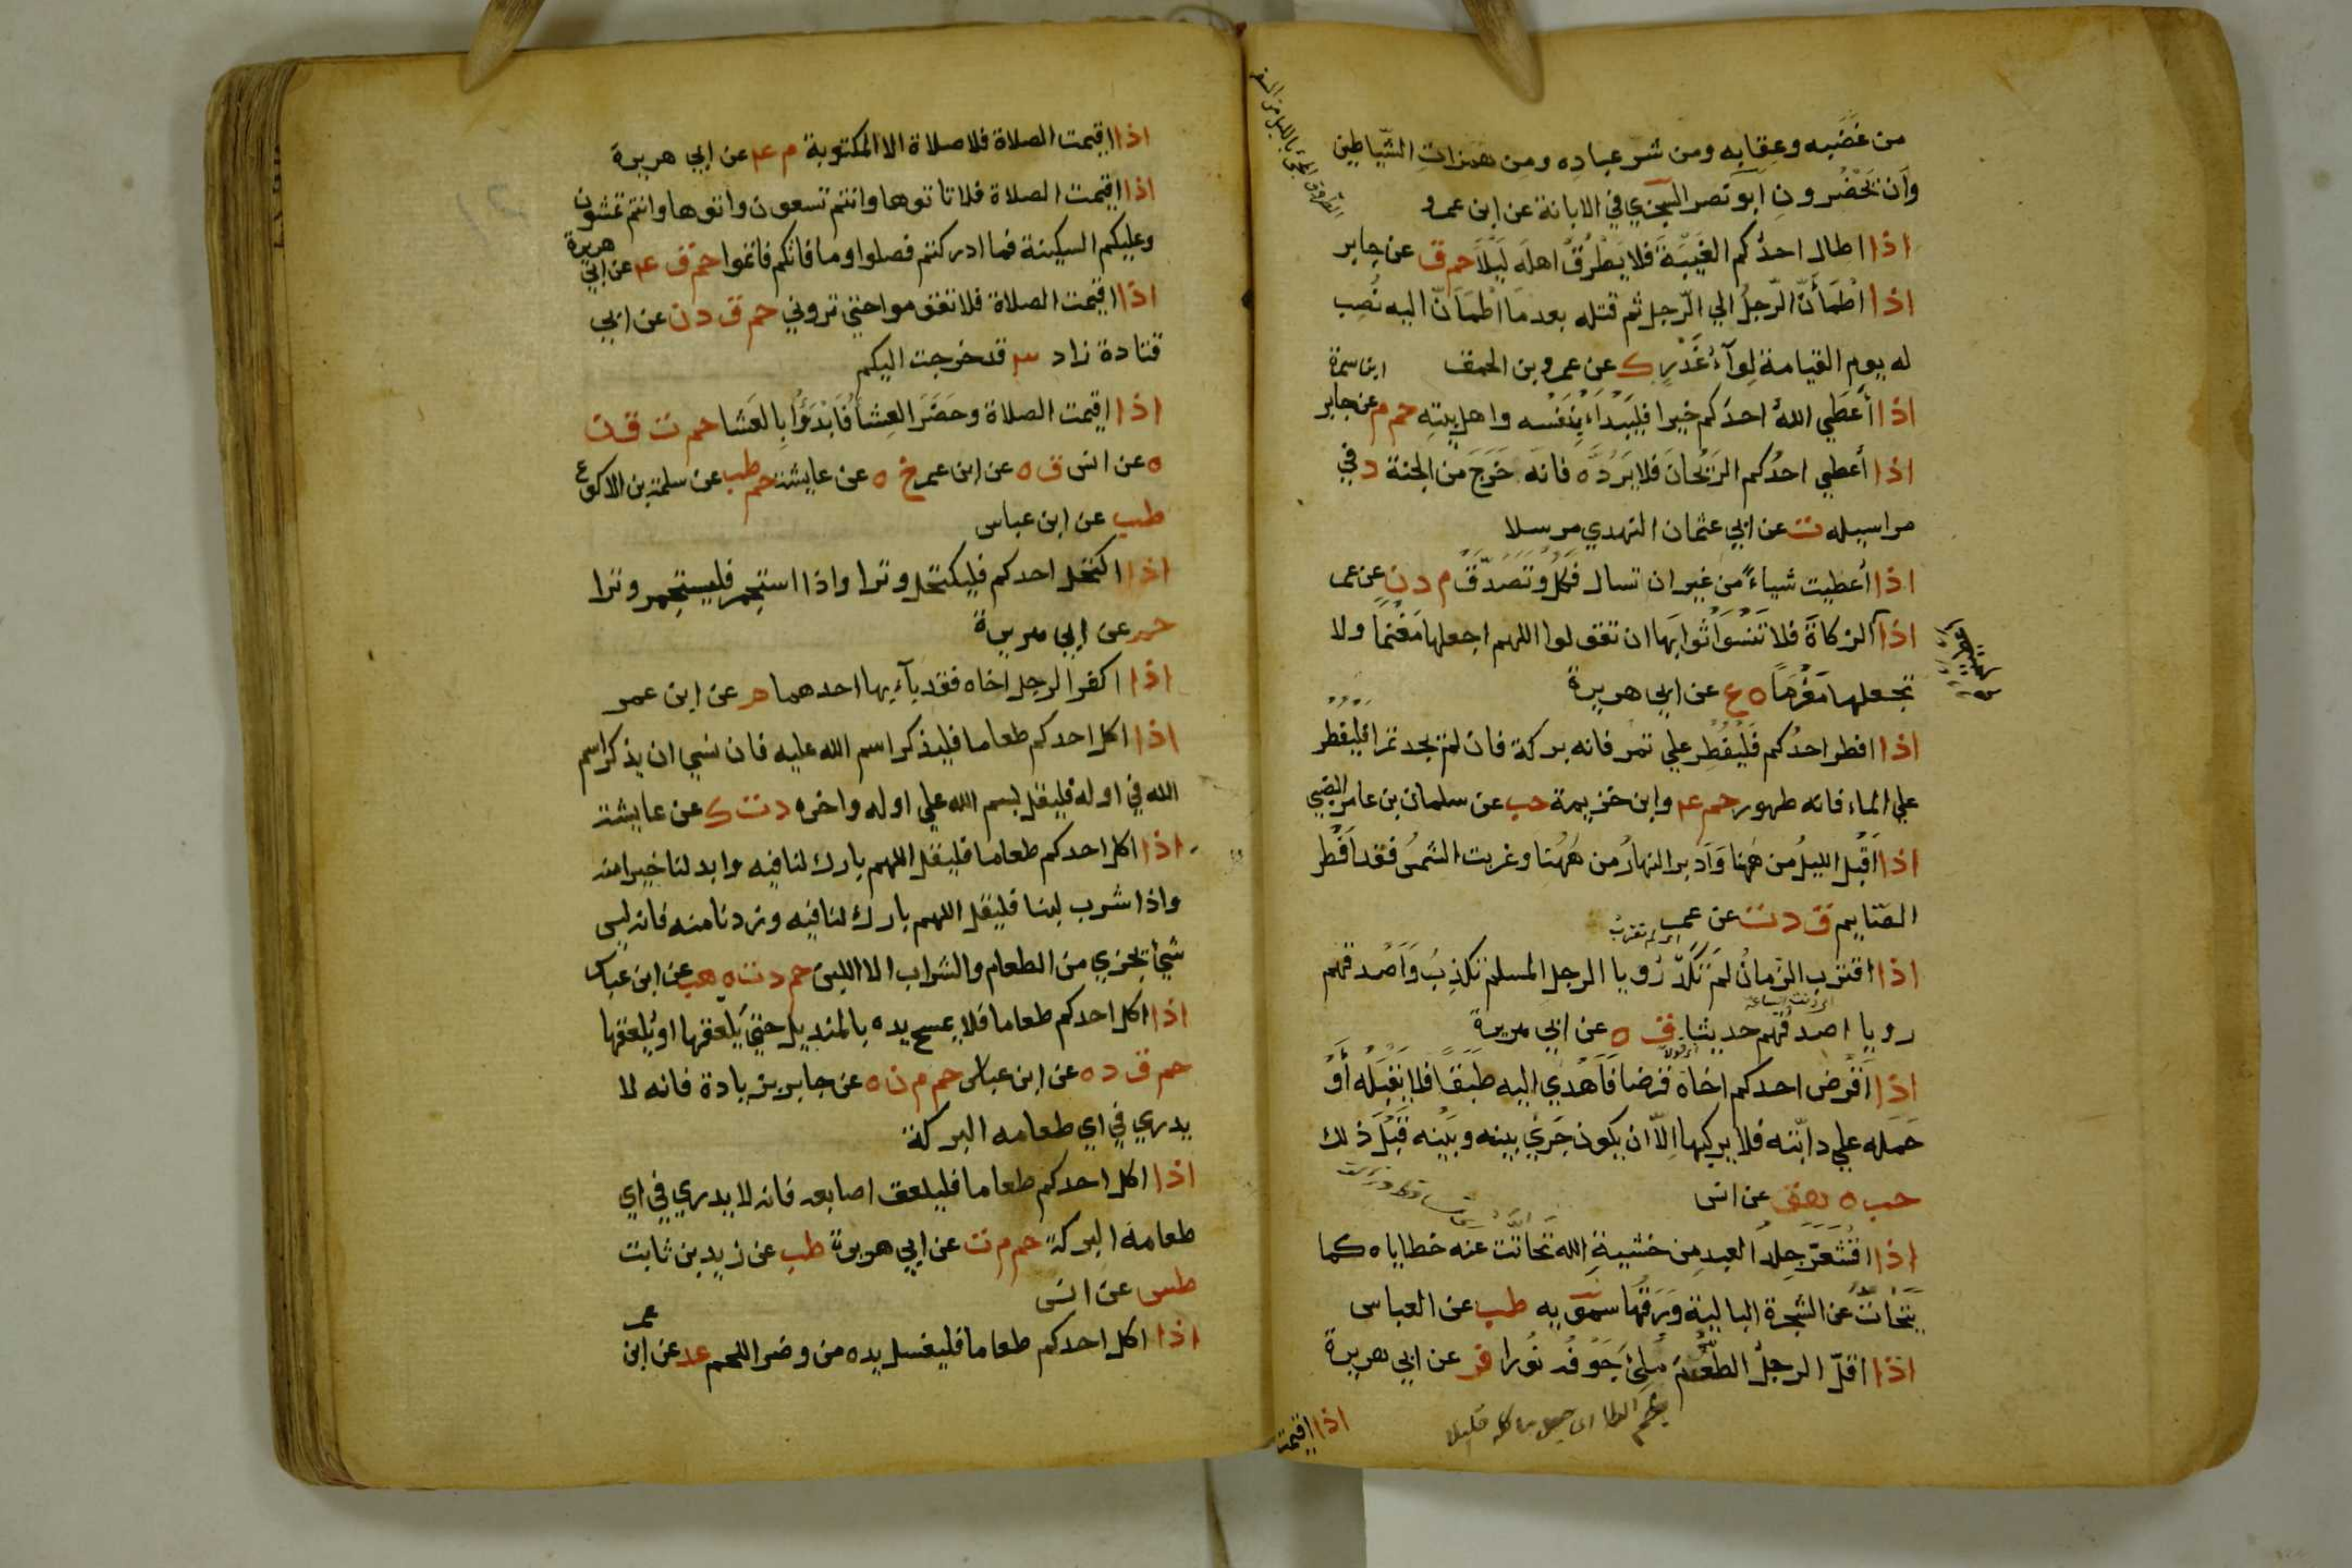 من غَضَبِه وعِقابِه ومن شر عباده ومن همزاتِ الشّياطين
وأن يَحْضُرونِ ابو نصر السجزي في الابانة عن ابن عمرو
اذا اطال احدُكم الغَيْبَةَ فلا يَطْرُقْ اهلَه لَيْلًا حم ق عن جابر
اذا اطْمَأَنَّ الرّجلُ الي الرّجل ثم قتله بعد ما اطْمَأَنَّ اليه نُصِب
له يوم القيامة لِوآءُ غَدْرٍ ك عن عمرو بن الحمق
ابن سمرة
اذا أَعْطَي اللهُ احدَكم خيرا فليَبْدَأ بِنَفْسِه واهل بيته حم م عن جابر
اذا أُعطي احدُكم الرَّيْحانَ فلا يَرُدّه فانه خَرَجَ من الجنة د في
مراسيله ت عن ابي عثمان النهدي مرسلا
اذا أُعطيتَ شيأً من غير ان تسال فكُلْ وتَصَدَّقْ م د ن عن عمر
اذا الزكاةَ فلا تَنْسَوْا ثَوابَها ان تقولوا اللهم اجعلها مَغْنَمًا ولا
اعطيتم
تجعلها مَغْرَمًا ه ع عن ابي هريرة
اذا افطر احدُكم فَلْيُفْطِر علي تمر فانه بركة فان لم يجد تمرا فليُفْطِر
علي الماء فانه طهور حم عم وابن خزيمة حب عن سلمان بن عامر الضبي
اذا اقبل الليلُ من هَهُنا وَأدبر النهارُ من هَهُنا وغربت الشمسُ فقد أفْطر
الصّايم ق د ت عن عمر
اي لم تقرب
اذا اقترب الزمانُ لم تَكَدْ رُويا الرجل المسلم تكذِبُ وَأَصْدقهم
رويا اصدقُهم حديثا ق ه عن ابي هريرة
اذا أَقْرَض احدكم اخاه قرضا فَأَهْدَي اليه طَبَقًا فلا يَقْبَله أوْ
حَمَلَه علي دابّته فلا يركبها الّا ان يكون جَرَي بينه وبَيْنه قَبْلَ ذلك
حب ه هق عن انس
اذا اقْشَعَرّ جِلدُ العبدِ من خشيةِ الله تَحاتَّتْ عنه خطاياه كما
يَتَحاتُّ عن الشجرة البالية وَرَقُها سمويه طب عن العباس
اذا اقلّ الرجلُ الطُّعْمَ مُلِئَ جَوْفُه نُورا فر عن ابي هريرة
اذا اقيمت
اذا اقيمت الصلاة فلا صلاة الا المكتوبة م عم عن ابي هريرة
اذا اقيمت الصلاة فلا تاتوها وانتم تسعون واتوها وانتم تمشون
وعليكم السكينة فما ادركتم فصلوا وما فاتكم فاتموا حم ق عم عن ابي هريرة
اذا اقيمت الصلاة فلا تقوموا حتي تروني حم ق د ن عن ابي
قتادة زاد قد خرجت اليكم
اذا اقيمت الصلاة وحَضَرَ العِشَا فَابْدَؤُا بِالعَشا حم ت ق ن
ه عن انس ق ه عن ابن عمر خ ه عن عايشة حم طب عن سلمة بن الاكوع
طب عن ابن عباس
اذا اكتحل احدكم فليكتحل وترا واذا استجمر فليستجمر وترا
حم عن ابي هريرة
اذا اكفر الرجل اخاه فقد بآء بها احدهما م عن ابن عمر
اذا اكل احدكم طعاما فليذكر اسم الله عليه فان نسي ان يذكر اسم
الله في اوله فليقل بسم الله علي اوله واخره د ت ك عن عايشة
اذا اكل احدكم طعاما فليقل اللهم بارك لنا فيه وابدلنا خيرا منه
واذا شرب لبنا فليقل اللهم بارك لنا فيه وزدنا منه فانه ليس
شيأ يجزي من الطعام والشراب الا اللبن حم د ت ه هب عن ابن عباس
اذا اكل احدكم طعاما فلا يمسح يده بالمنديل حتي يَلعقها او يُلعقها
حم ق د ه عن ابن عباس حم م ن ه عن جابر بزيادة فانه لا
يدري في اي طعامه البركة
اذا اكل احدكم طعاما فليلعق اصابعه فانه لا يدري في اي
طعامه البركة حم م ت عن ابي هريرة طب عن زيد بن ثابت
طس عن انس
اذا اكل احدكم طعاما فليغسل يده من وضر اللحم عد عن ابن عمر